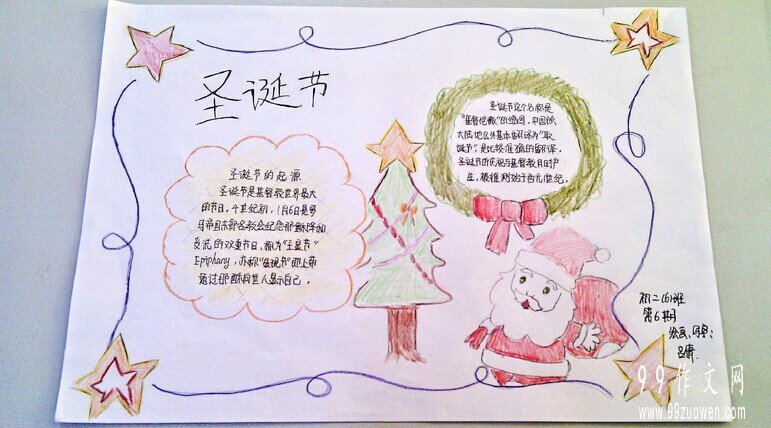 圣诞节
圣诞节的起源
圣诞节是基督教世界最大
的节日。4世纪初,1月6日是罗
马帝国东部各教会纪念耶稣降和
受洗的双重节日、称为"主显节"
Epiphany,亦称"显现节"即上帝
通过耶稣向世人显示自己。
圣诞节这个名称是
"基督弥撒"的缩写。中国
大陆地区外基本翻译为"耶
诞节",是比较准确的翻译。
圣诞节的庆祝与基督教同时产
生,被推测始于西元1世纪。
初二(6)班
第6期
绘画、
99作文网
www.99zuowen.com